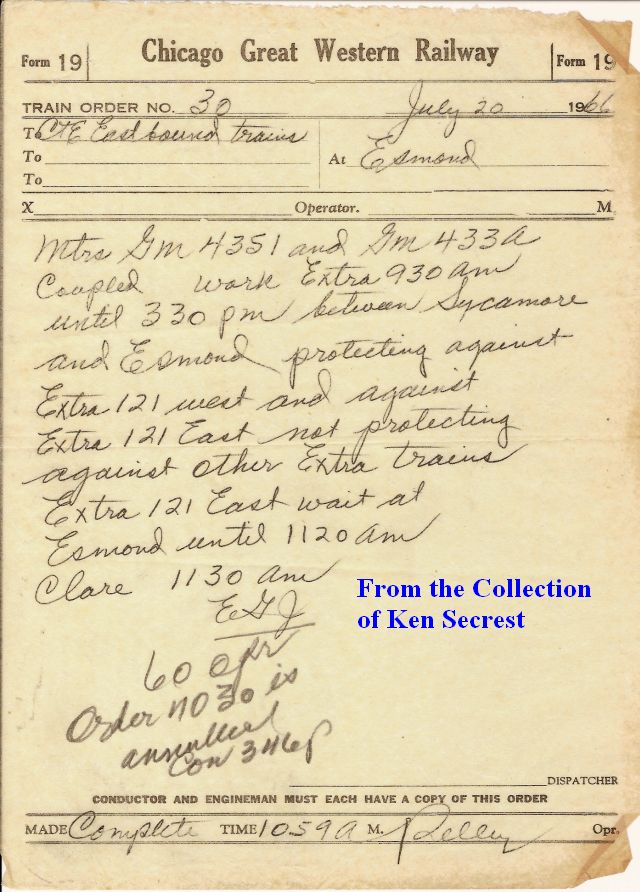 Form 19 Chicago Great Western Railway Form 19
TRAIN ORDER NO. 30 July 20 1966
To C+E Eastbound trains
To At Esmond
To
X Operator. M
Mtrs GM 4351 and GM 433A
Coupled work Extra 930 am
until 330 pm between Sycamore
and Esmond protecting against
Extra 121 west and against
Extra 121 East not protecting
against other Extra trains
Extra 121 East wait at
Esmond until 1120 am
Clare 1130 am
EGJ
60 opr
Order NO 30 is
annulled
Con 346p
From the Collection
of Ken Secrest
DISPATCHER
CONDUCTOR AND ENGINEMAN MUST EACH HAVE A COPY OF THIS ORDER
MADE Complete TIME 1059 A M. Opr.